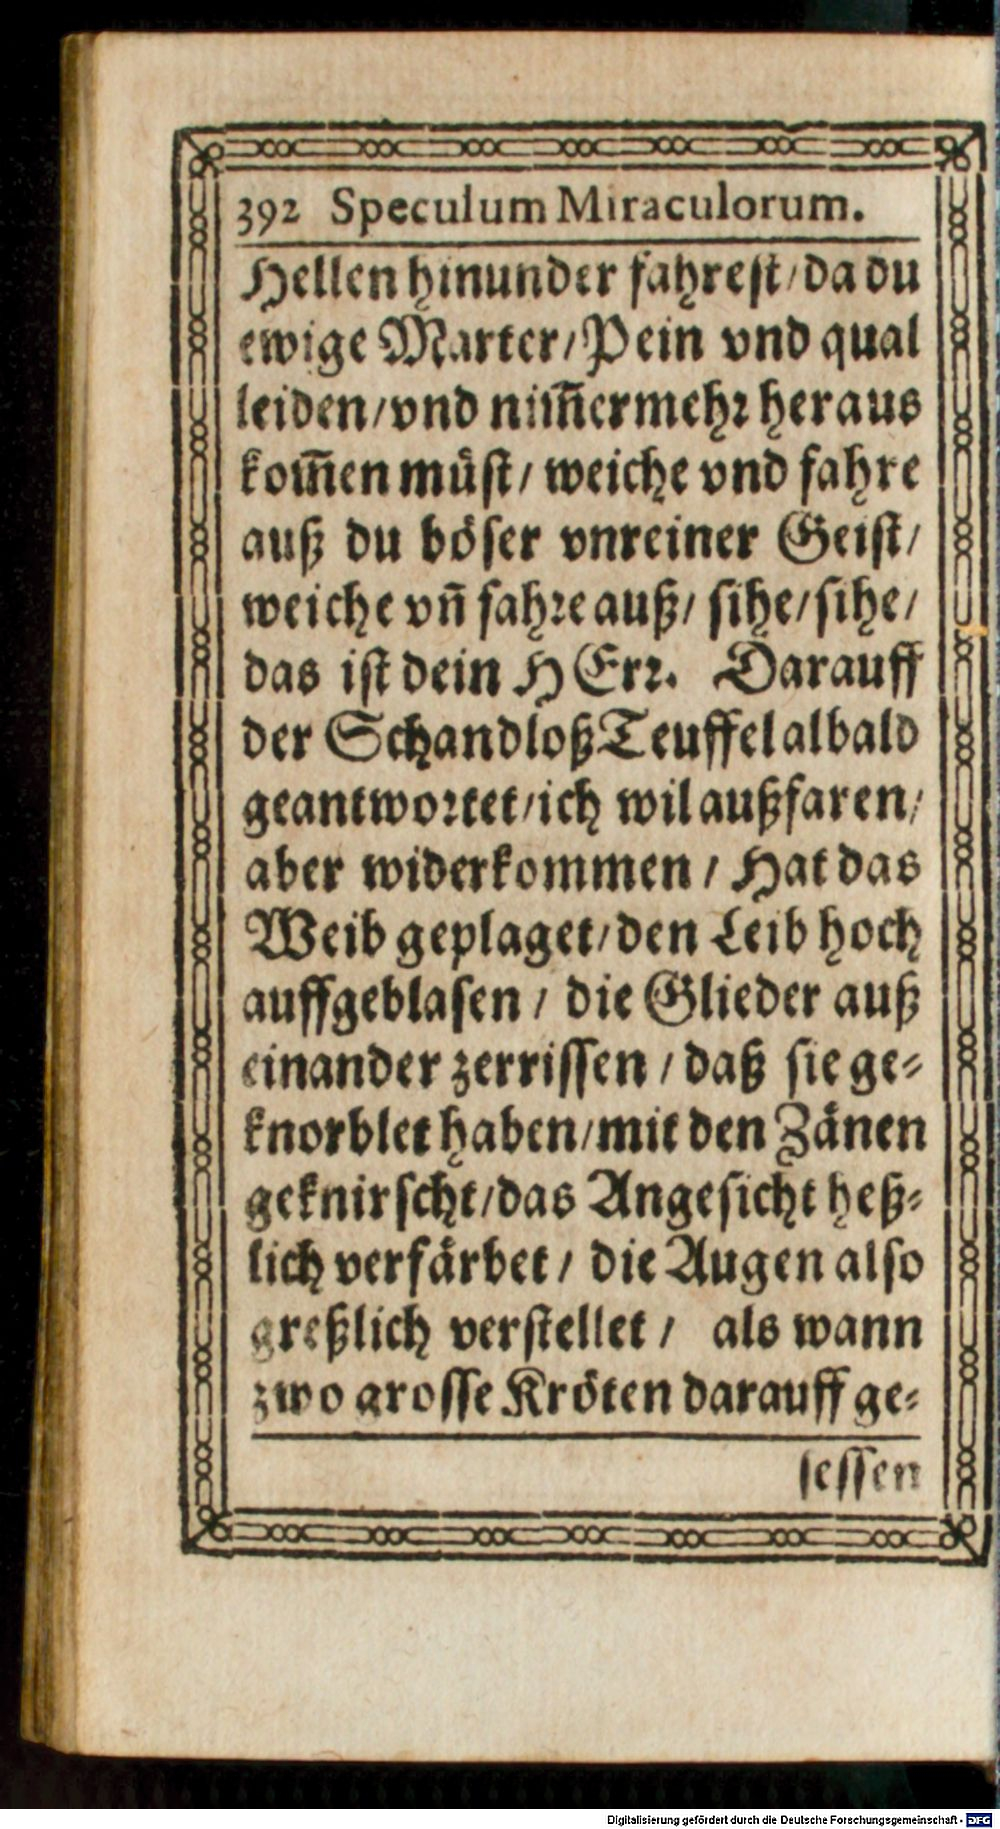 392 Speculum Miraculorum.
Hellen hinunder fahrest/ da du
ewige Marter/ Pein vnd qual
leiden/ vnd nim̃ermehr heraus
kom̃en müst/ weiche vnd fahre
auß du böser vnreiner Geist/
weiche vñ fahre auß/ sihe/ sihe/
das ist dein HErr. Darauff
der Schandloß Teuffel albald
geantwortet/ ich wil außfaren/
aber widerkommen / Hat das
Weib geplaget/ den Leib hoch
auffgeblasen / die Glieder auß
einander zerrissen / daß sie ge⸗
knorblet haben/ mit den Zänen
geknirscht/ das Angesicht heß⸗
lich verfärbet / die Augen also
greßlich verstellet / als wann
zwo grosse Kröten darauff ge⸗
sessen
Digitalisierung gefördert durch die Deutsche Forschungsgemeinschaft - DFG